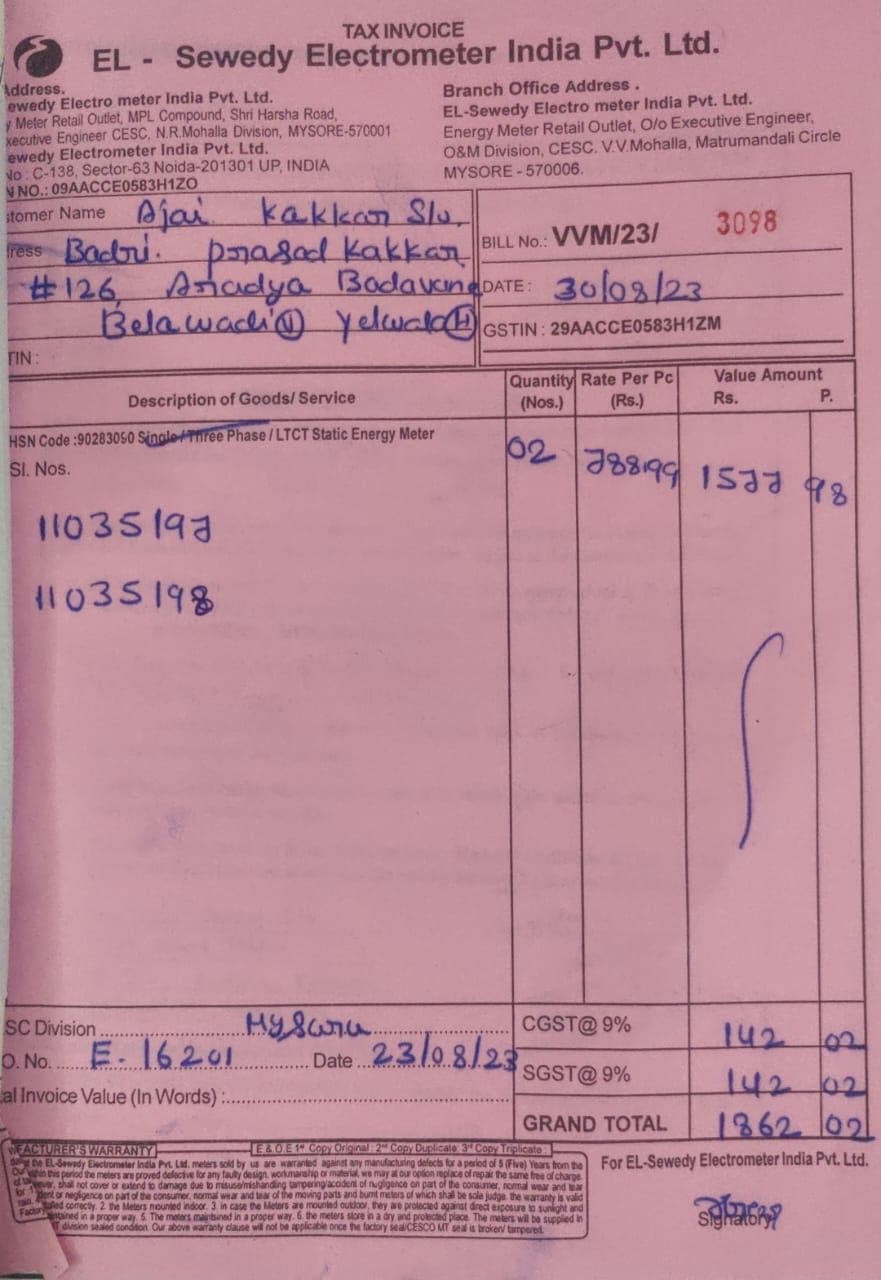 TAX INVOICE
EL - Sewedy Electrometer India Pvt. Ltd.
Address.
ewedy Electro meter India Pvt. Ltd.
y Meter Retail Outlet, MPL Compound, Shri Harsha Road,
xecutive Engineer CESC, N.R.Mohalla Division, MYSORE-570001
ewedy Electrometer India Pvt. Ltd.
No : C-138, Sector-63 Noida-201301 UP, INDIA
N NO.: 09AACCE0583H1ZO
Branch Office Address .
EL-Sewedy Electro meter India Pvt. Ltd.
Energy Meter Retail Outlet, O/o Executive Engineer,
O&M Division, CESC. V.V.Mohalla, Matrumandali Circle
MYSORE - 570006.
tomer Name Ajai Kakkar S/o
ress Badri. prasad Kakkar
#126, Badavane
Belawadi (V) Yelwala (H)
TIN :
BILL No.: VVM/23/ 3098
DATE : 30/08/23
GSTIN : 29AACCE0583H1ZM
Description of Goods/ Service
Quantity (Nos.)
Rate Per Pc (Rs.)
Value Amount
Rs. P.
HSN Code :90283090 Single / Three Phase / LTCT Static Energy Meter
02 788.99 1577 98
Sl. Nos.
11035197
11035198
SC Division Mysuru
O. No. E-16201 Date 23/08/23
al Invoice Value (In Words) :
CGST@ 9% 142 02
SGST@ 9% 142 02
GRAND TOTAL 1862 02
FACTURER'S WARRANTY
E & O.E 1st Copy Original : 2nd Copy Duplicate: 3rd Copy Triplicate
the EL-Sewedy Electrometer India Pvt. Ltd. meters sold by us are warranted against any manufacturing defects for a period of 5 (Five) Years from the
within this period the meters are proved defective for any faulty design, workmanship or material, we may at our option replace of repair the same free of charge.
shall not cover or extend to damage due to misuse/mishandling tampering/accident of nugligence on part of the consumer, normal wear and tear
or negligence on part of the consumer, normal wear and tear of the moving parts and burnt meters of which shall be sole judge. the warranty is valid
correctly. 2. the Meters mounted indoor. 3. in case the Meters are mounted outdoor, they are protected against direct exposure to sunlight and
in a proper way. 5. The meters maintained in a proper way. 6. the meters store in a dry and protected place. The meters will be supplied in
division sealed condition. Our above warranty clause will not be applicable once the factory seal/CESCO MT seal is broken/ tampered.
For EL-Sewedy Electrometer India Pvt. Ltd.
Signatory